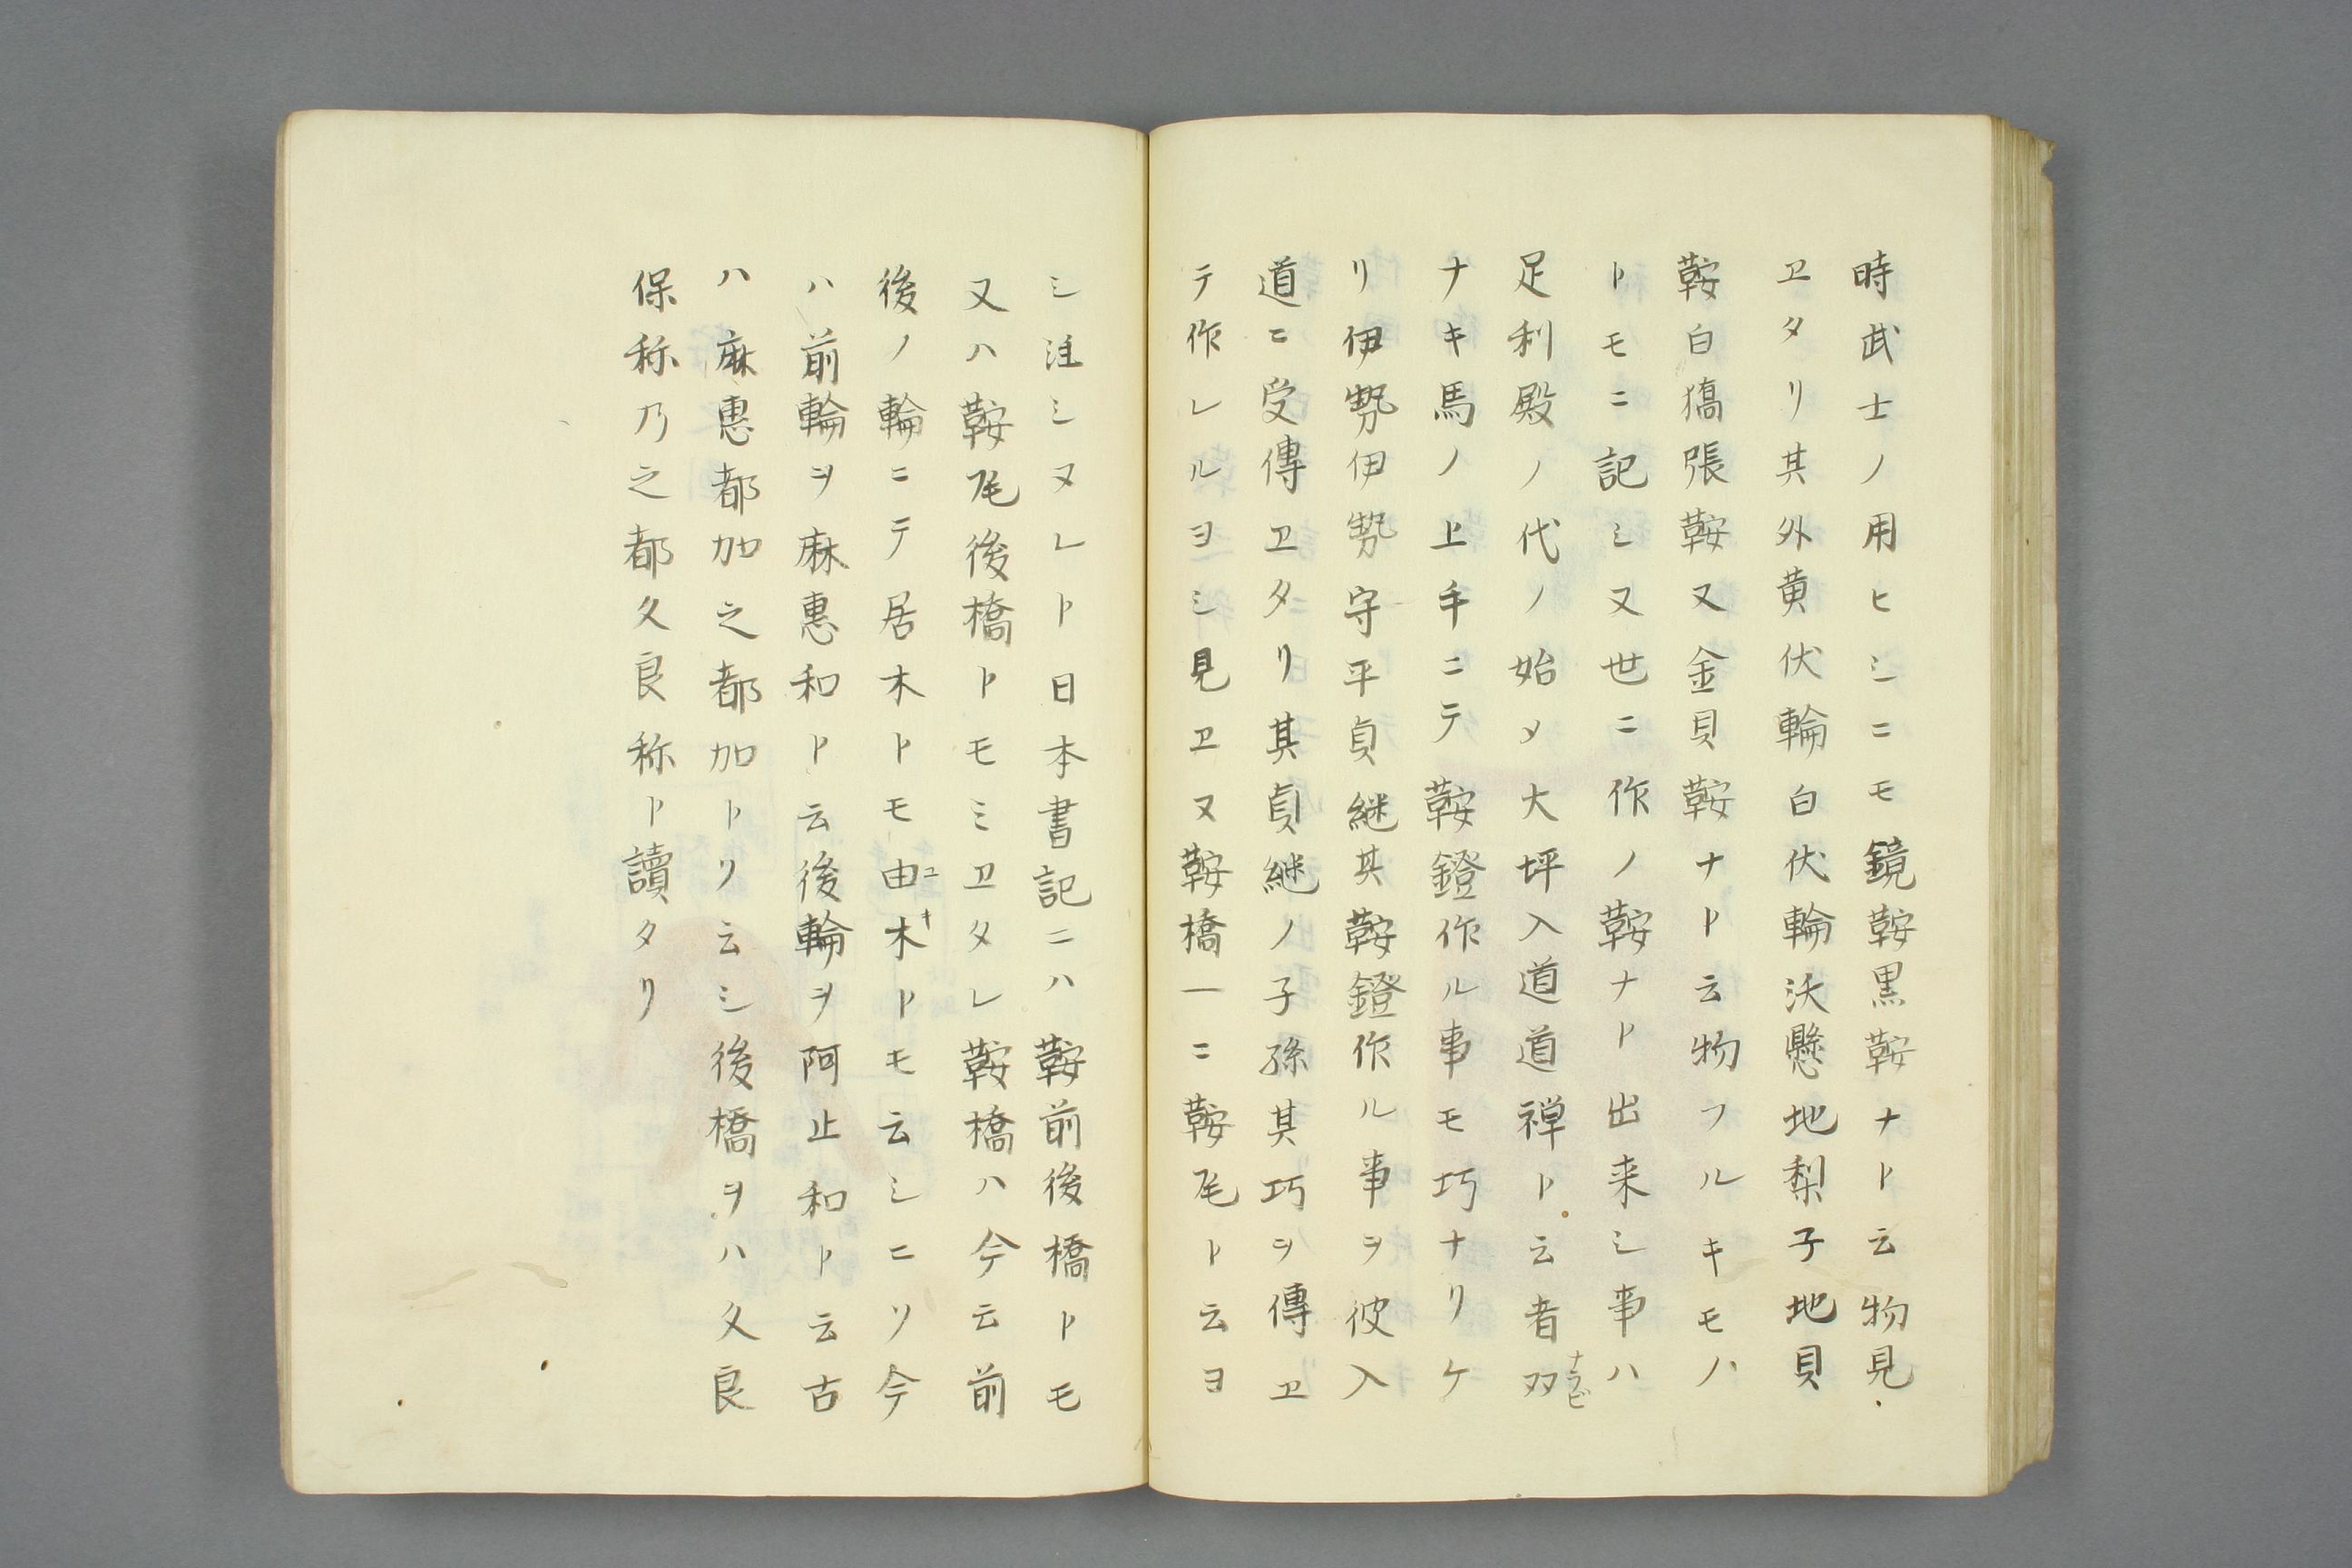 時武士ノ用ヒシニモ鏡鞍黒鞍ナト云物見
ヱタリ其外黄伏輪白伏輪沃懸地梨子地貝
鞍白𤩍張鞍又金貝鞍ナト云物フルキモノ
トモニ記シ又世ニ作ノ鞍ナト出来シ事ハ
足利殿ノ代ノ始メ大坪入道道禅ト云者双ナラビ
ナキ馬ノ上手ニテ鞍鐙作ル事モ巧ナリケ
リ伊勢伊勢守平貞継其鞍鐙作ル事ヲ彼入
道ニ受傳ヱタリ其貞継ノ子孫其巧ヲ傳ヱ
テ作レルヨシ見ヱ又鞍橋一ニ鞍尾ト云ヨ
シ注シヌレト日本書記ニハ鞍前後橋トモ
又ハ鞍尾後橋トモミヱタレ鞍橋ハ今云前
後ノ輪ニテ居木トモ由ユ木キトモ云シニソ今
ハ前輪ヲ麻惠和ト云後輪ヲ阿止和ト云古
ハ麻惠都加之都加トソ云シ後橋ヲハ久良
保称乃之都久良称ト讀タリ